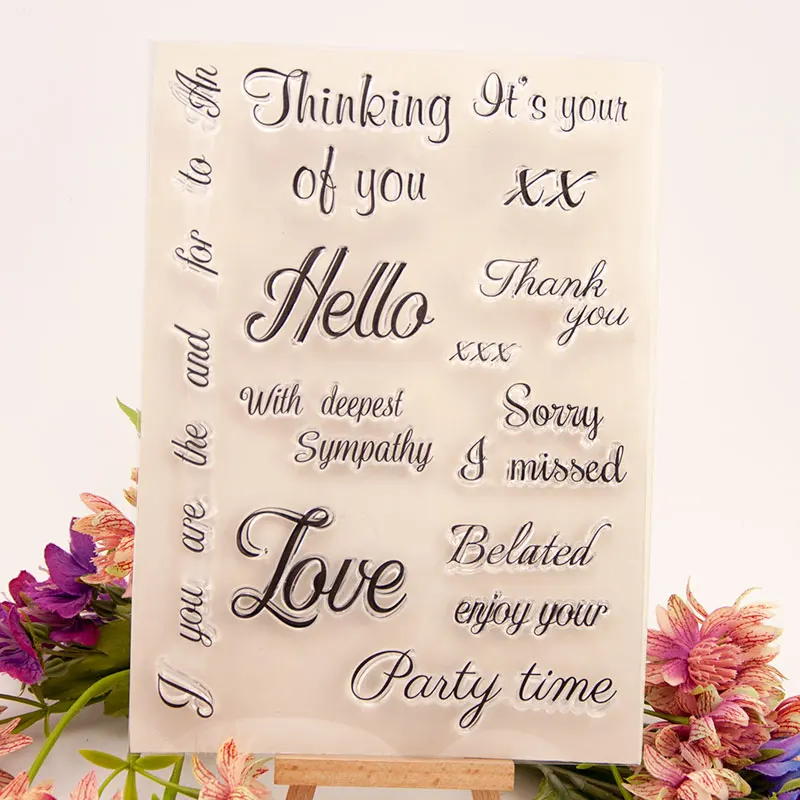 I you are the and for to An
Thinking
of you
It's your
xx
Hello
Thank
you
xxx
With deepest
Sympathy
Sorry
I missed
Love
Belated
enjoy your
Party time